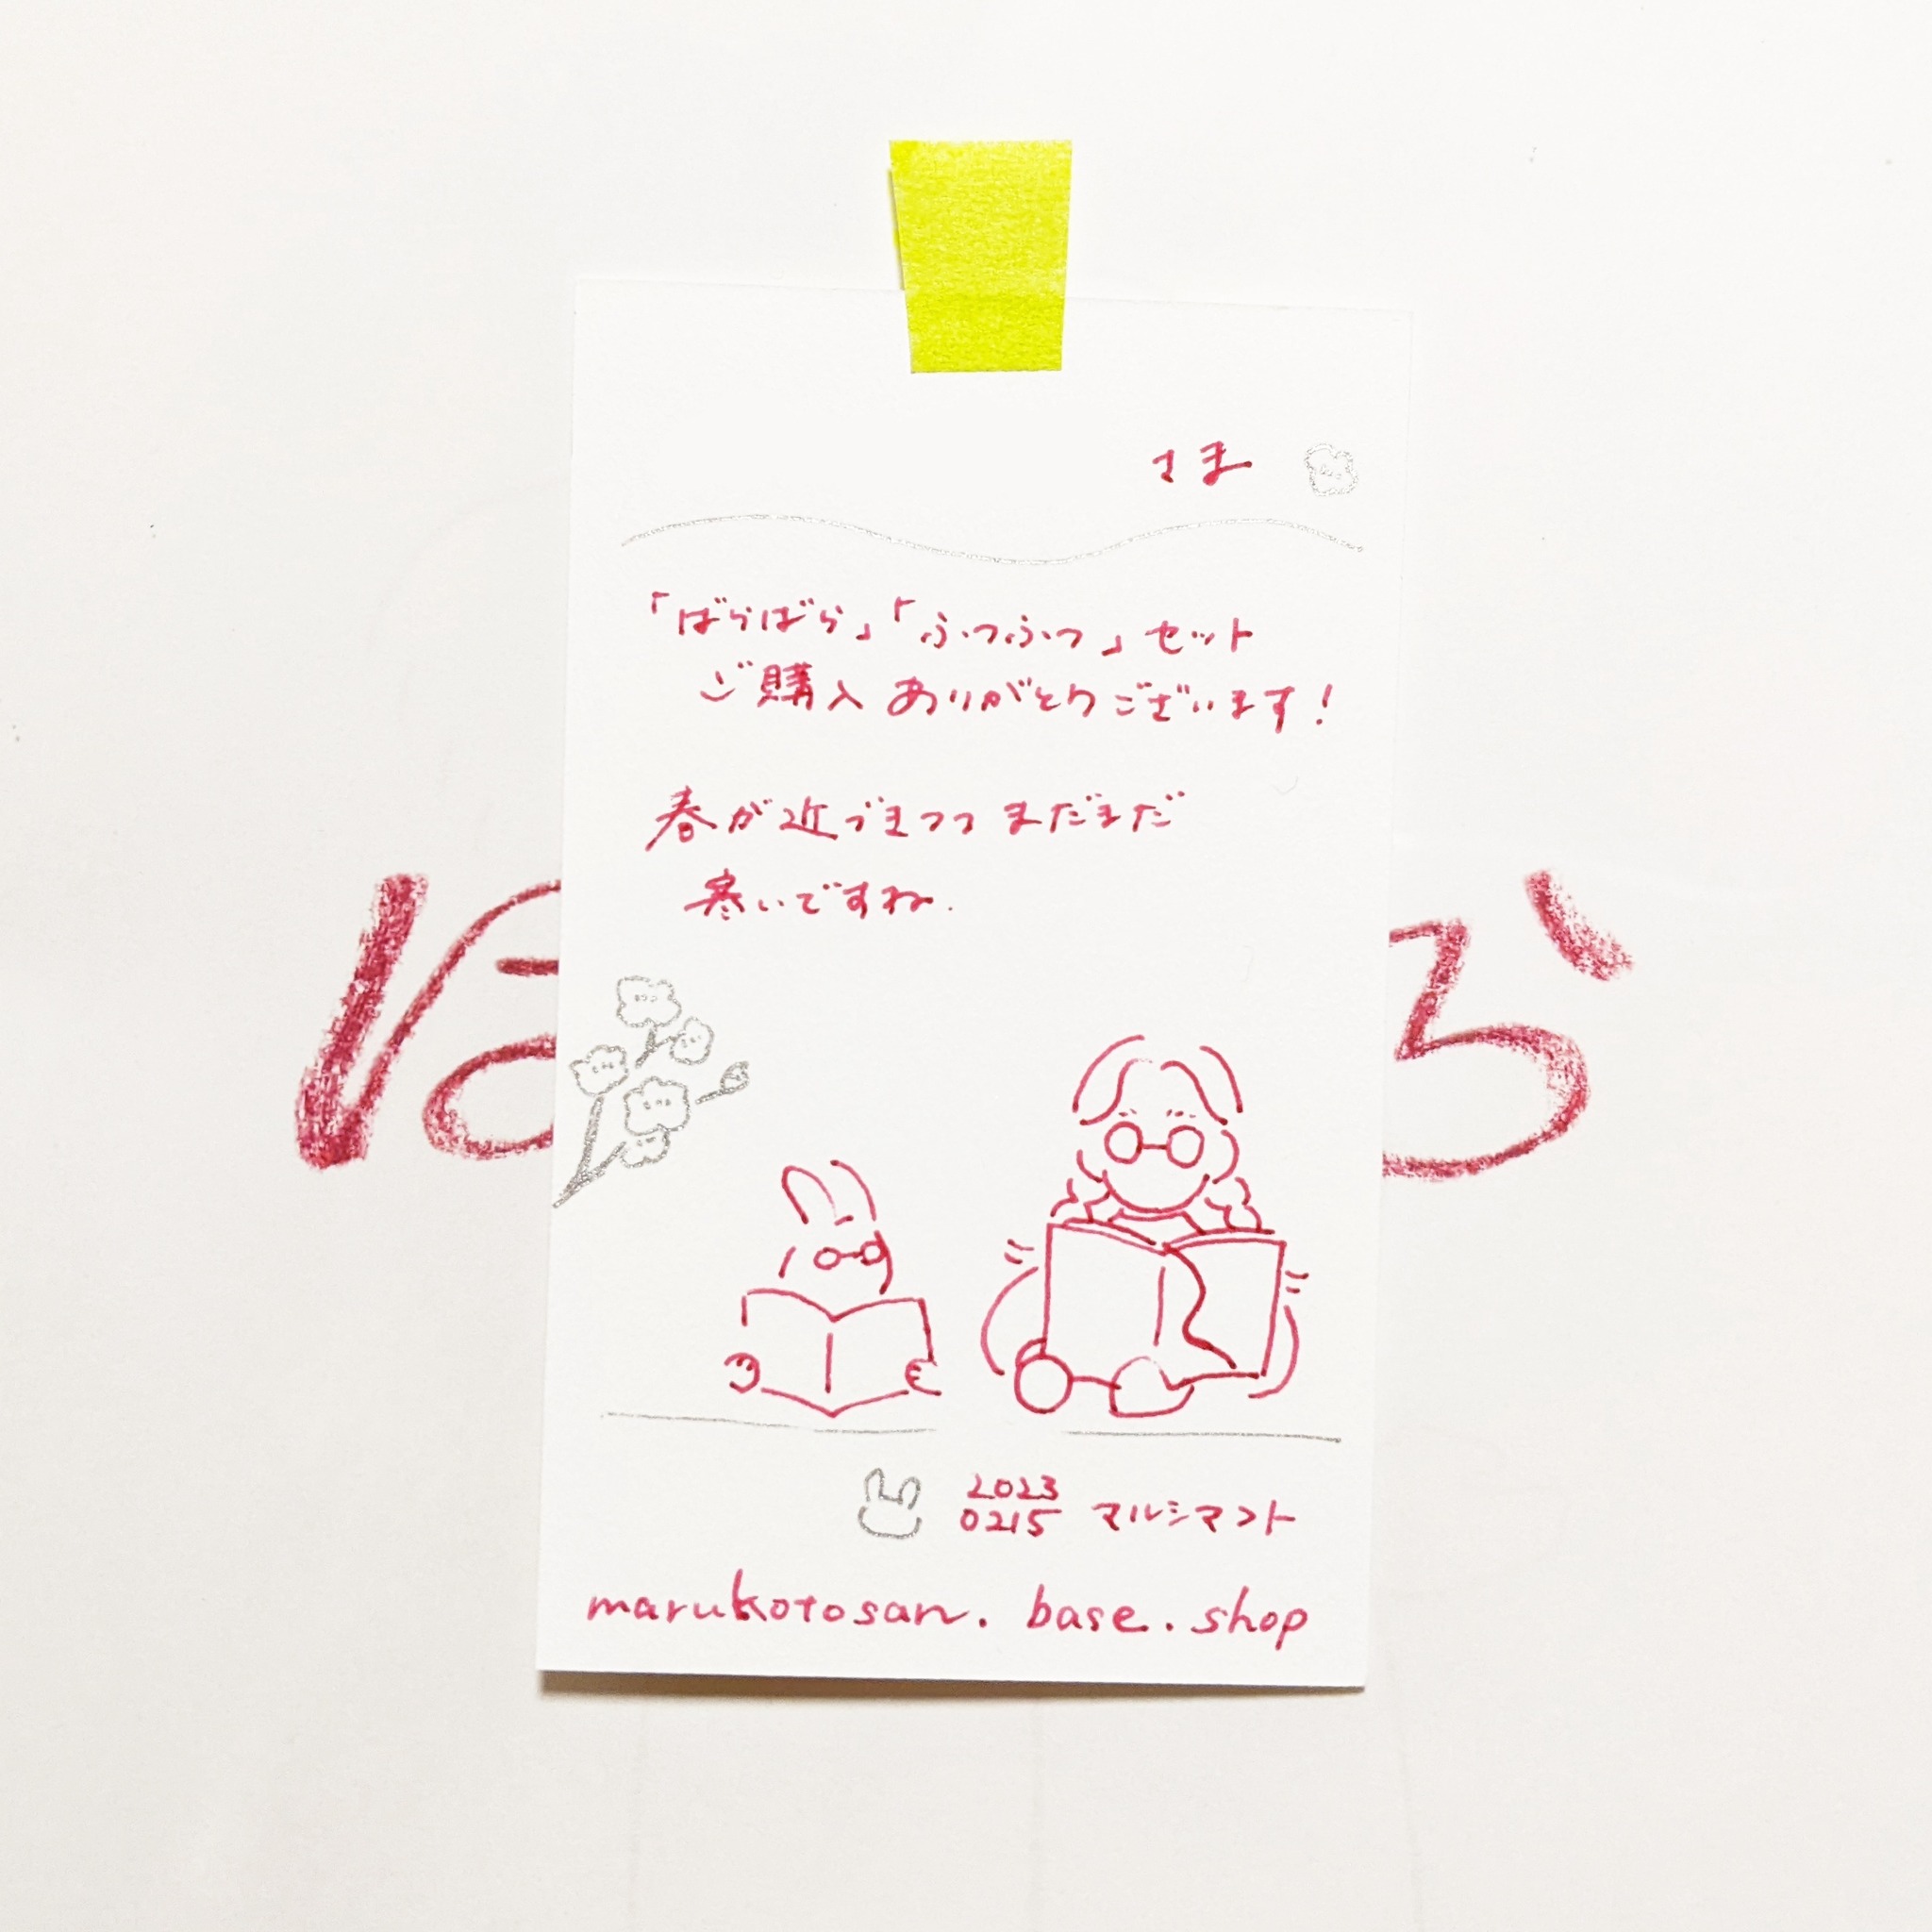 さま
「ばらばら」「ふつふつ」セット
ご購入ありがとうございます!
春が近づきつつまだまだ
寒いですね.
2023
0215 マルシマコト
marukotosan. base. shop